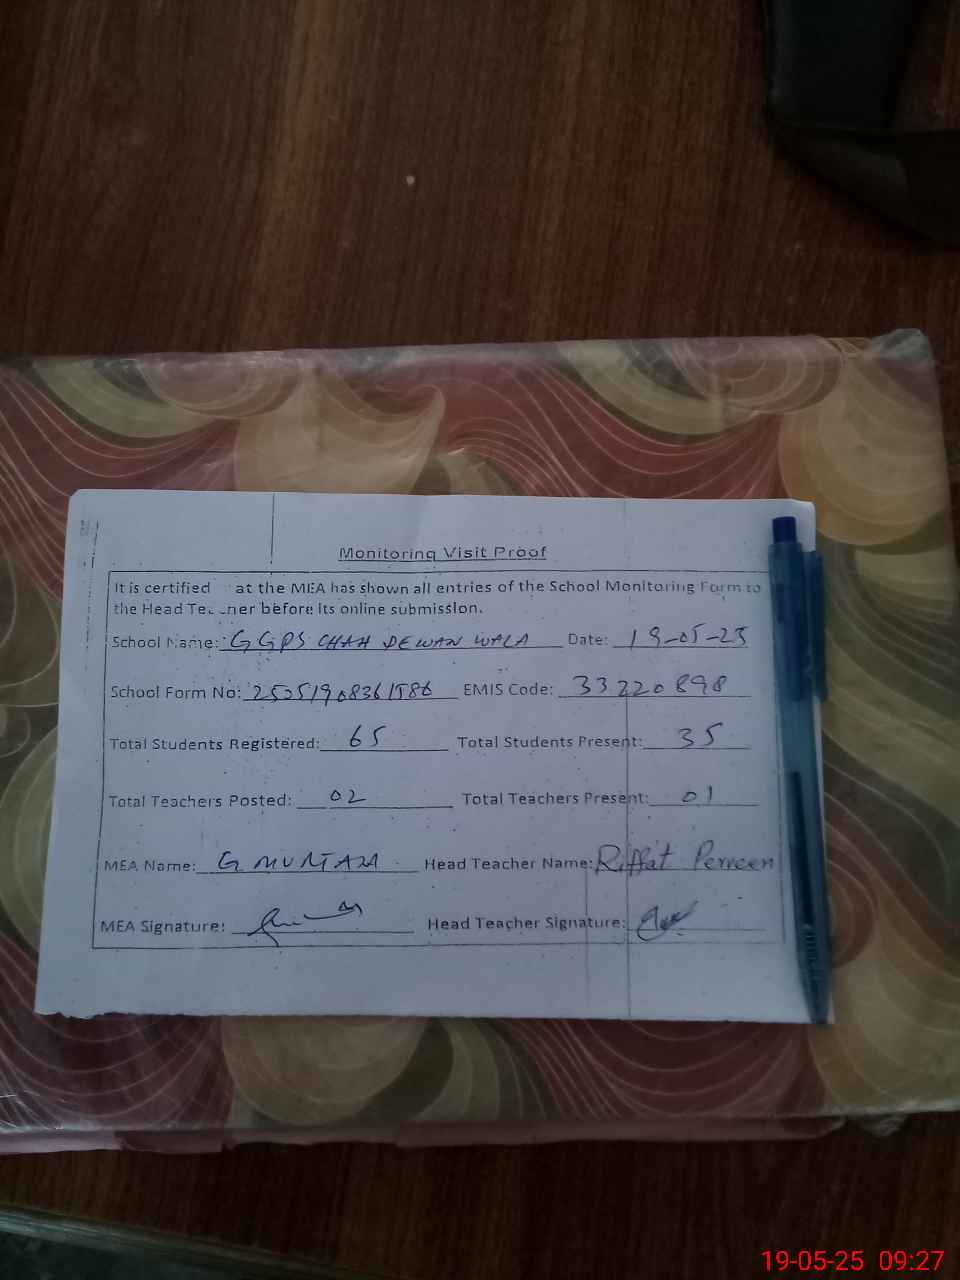 Monitoring Visit Proof
It is certified at the MEA has shown all entries of the School Monitoring Form to
the Head Teacher before its online submission.
School Name: GGPS CHAH DEWAN WALA Date: 19-05-25
School Form No: 25051908361586 EMIS Code: 33220898
Total Students Registered: 65 Total Students Present: 35
Total Teachers Posted: 02 Total Teachers Present: 01
MEA Name: G MUMTAZ Head Teacher Name: Riffat Perveen
MEA Signature: Head Teacher Signature:
19-05-25 09:27